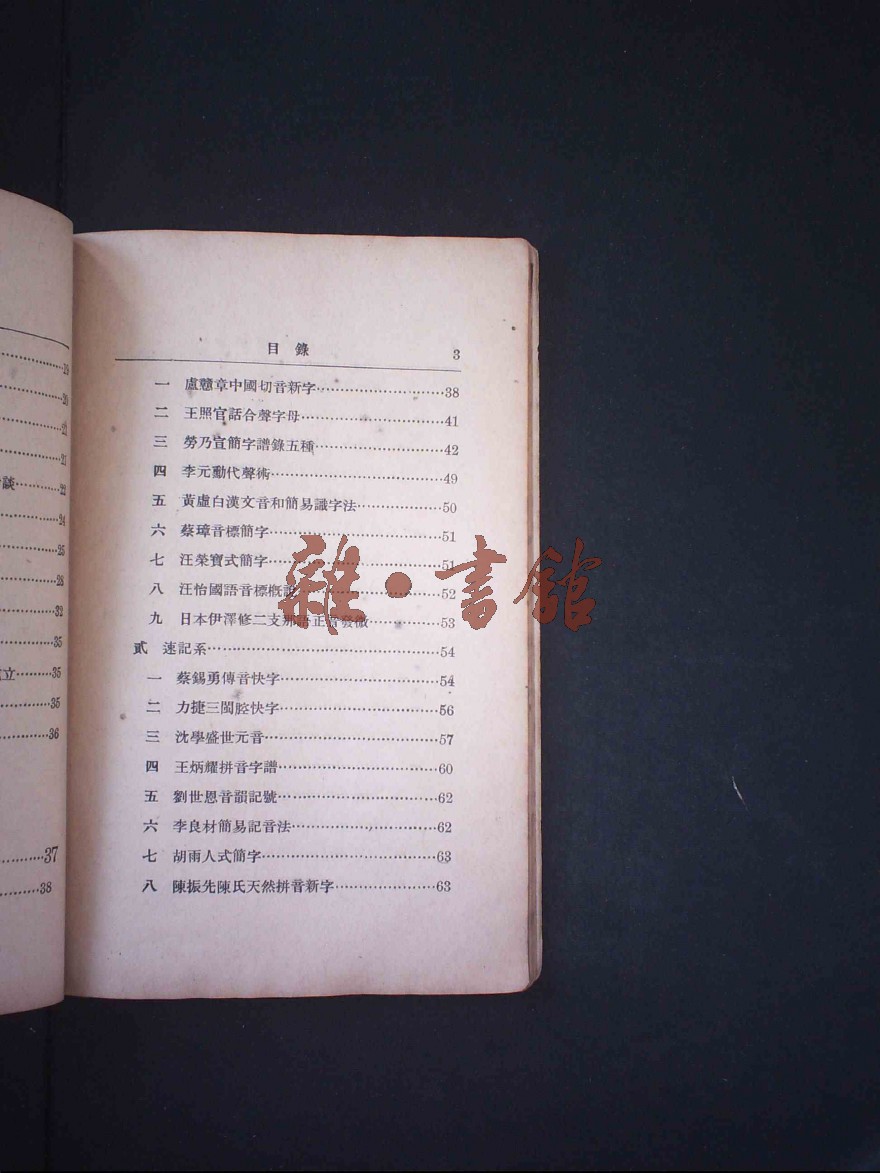 19
20
21
21
談………22
24
25
28
32
35
立……35
35
36
37
38
目錄 3
一 盧戇章中國切音新字………38
二 王照官話合聲字母………41
三 勞乃宣簡字譜錄五種………42
四 李元勳代聲術………49
五 黃虛白漢文音和簡易識字法………50
六 蔡璋音標簡字………51
七 汪榮寶式簡字………51
八 汪怡國語音標概說………52
九 日本伊澤修二支那語正音發微………53
貳 速記系………54
一 蔡錫勇傳音快字………54
二 力捷三閩腔快字………56
三 沈學盛世元音………57
四 王炳耀拼音字譜………60
五 劉世恩音韻記號………62
六 李良材簡易記音法………62
七 胡雨人式簡字………63
八 陳振先陳氏天然拼音新字………63
雜·書館